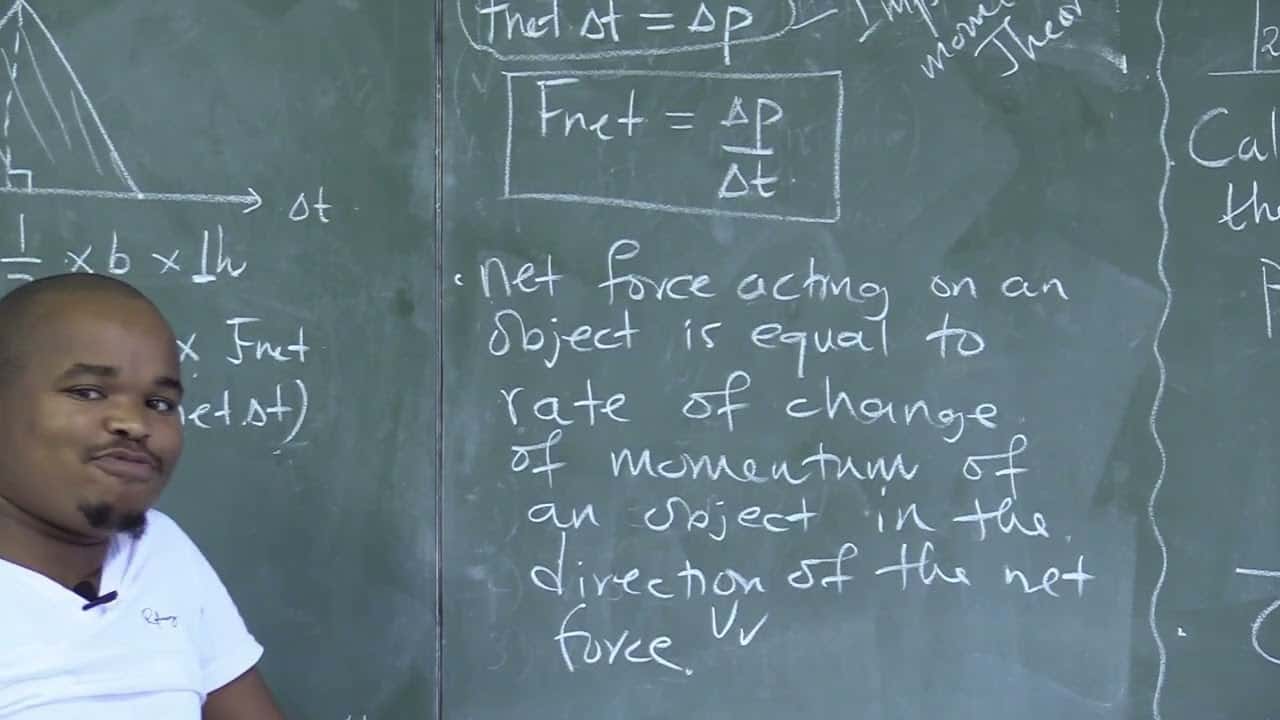 Δt
1/2 x b x ⊥h
x Fnet
net Δt)
Fnet Δt = Δp
Fnet = Δp/Δt
. net force acting on an
object is equal to
rate of change
of momentum of
an object in the
direction of the net
force. ✓✓
2
Cal
the